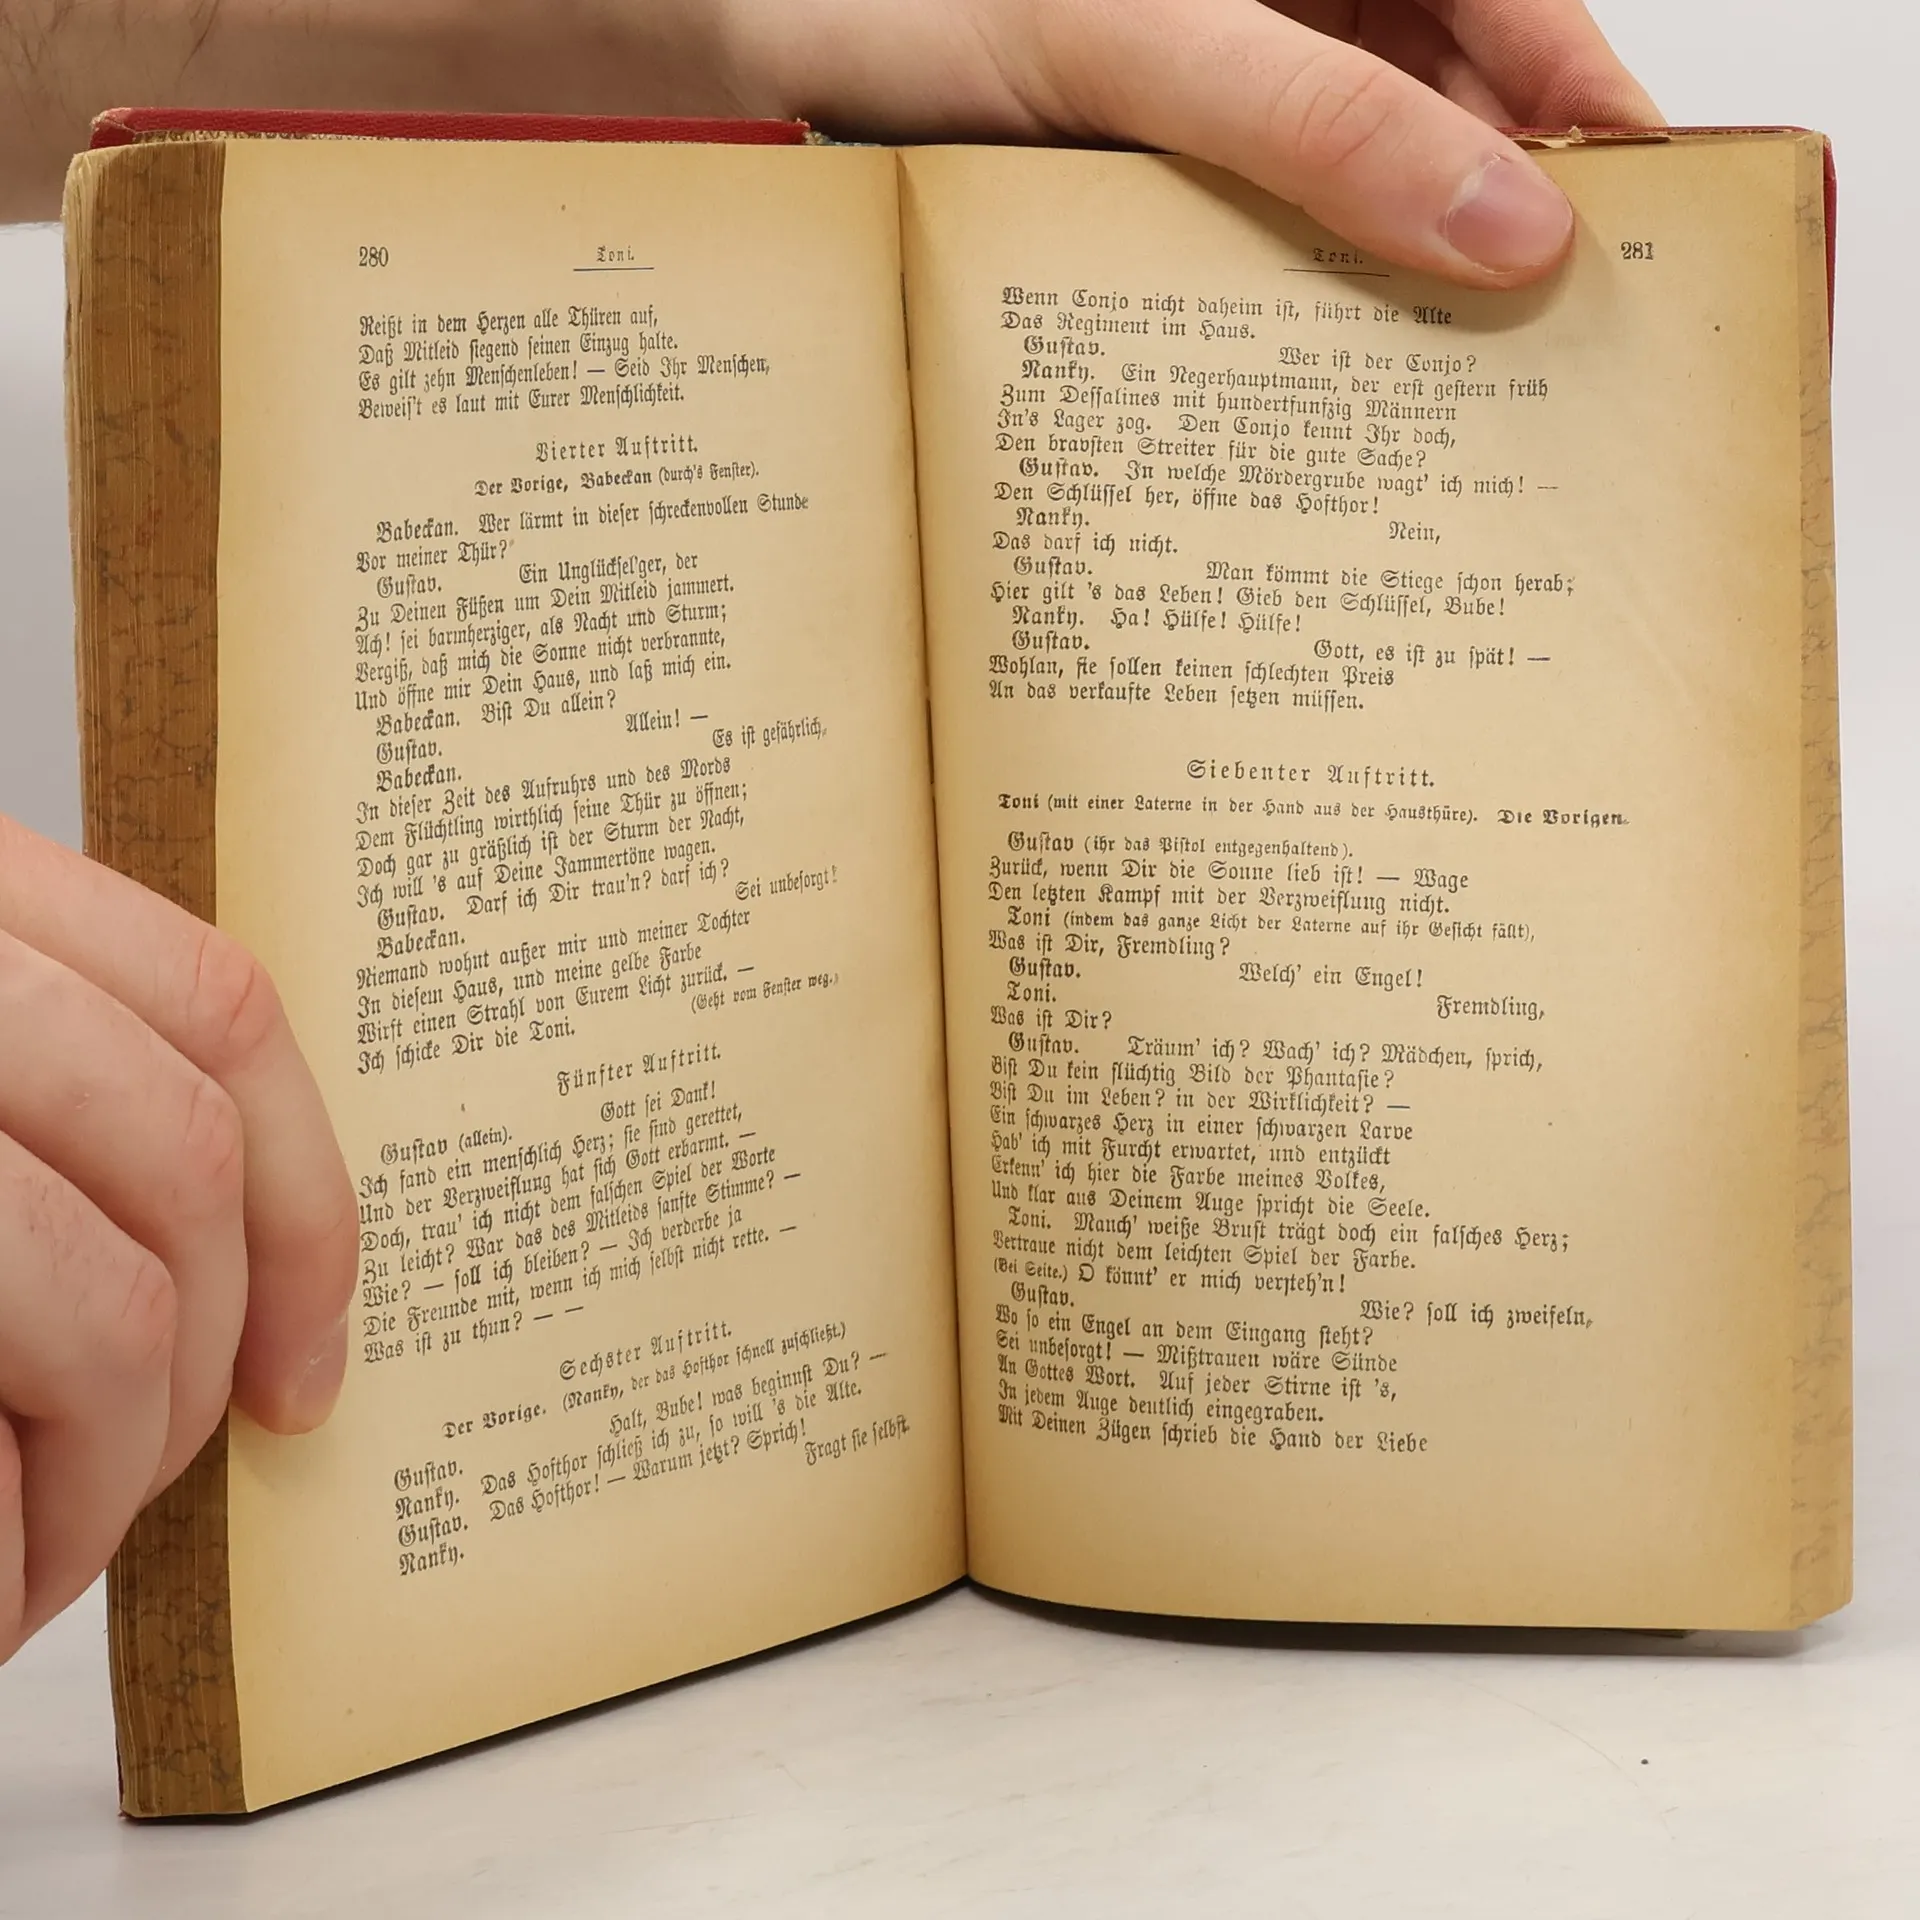 280
Toni.
Reißt in dem Herzen alle Thüren auf,
Daß Mitleid siegend seinen Einzug halte.
Es gilt zehn Menschenleben! — Seid Ihr Menschen,
Beweis't es laut mit Eurer Menschlichkeit.
Vierter Auftritt.
Der Vorige, Babeckan (durch's Fenster).
Babeckan. Wer lärmt in dieser schreckenvollen Stunde
Vor meiner Thür?
Gustav. Ein Unglücksel'ger, der
Zu Deinen Füßen um Dein Mitleid jammert.
Ach! sei barmherziger, als Nacht und Sturm;
Vergiß, daß mich die Sonne nicht verbrannte,
Und öffne mir Dein Haus, und laß mich ein.
Babeckan. Bist Du allein?
Gustav. Allein! —
Babeckan. Es ist gefährlich,
In dieser Zeit des Aufruhrs und des Mords
Dem Flüchtling wirthlich seine Thür zu öffnen;
Doch gar zu gräßlich ist der Sturm der Nacht,
Ich will 's auf Deine Jammertöne wagen.
Gustav. Darf ich Dir trau'n? darf ich?
Babeckan. Sei unbesorgt!
Niemand wohnt außer mir und meiner Tochter
In diesem Haus, und meine gelbe Farbe
Wirft einen Strahl von Eurem Licht zurück. —
Ich schicke Dir die Toni. (Geht vom Fenster weg.)
Fünfter Auftritt.
Gustav (allein). Gott sei Dank!
Ich fand ein menschlich Herz; sie sind gerettet,
Und der Verzweiflung hat sich Gott erbarmt. —
Doch, trau' ich nicht dem falschen Spiel der Worte
Zu leicht? War das des Mitleids sanfte Stimme? —
Wie? — soll ich bleiben? — Ich verderbe ja
Die Freunde mit, wenn ich mich selbst nicht rette. —
Was ist zu thun? — —
Sechster Auftritt.
Der Vorige. (Nanky, der das Hofthor schnell zuschließt.)
Gustav. Halt, Bube! was beginnst Du? —
Nanky. Das Hofthor schließ ich zu, so will 's die Alte.
Gustav. Das Hofthor! — Warum jetzt? Sprich!
Nanky. Fragt sie selbst.
Toni.
281
Wenn Conjo nicht daheim ist, führt die Alte
Das Regiment im Haus.
Gustav. Wer ist der Conjo?
Nanky. Ein Negerhauptmann, der erst gestern früh
Zum Dessalines mit hundertfunfzig Männern
In's Lager zog. Den Conjo kennt Ihr doch,
Den bravsten Streiter für die gute Sache?
Gustav. In welche Mördergrube wagt' ich mich! —
Den Schlüssel her, öffne das Hofthor!
Nanky. Nein,
Das darf ich nicht.
Gustav. Man kömmt die Stiege schon herab;
Hier gilt 's das Leben! Gieb den Schlüssel, Bube!
Nanky. Ha! Hülfe! Hülfe!
Gustav. Gott, es ist zu spät! —
Wohlan, sie sollen keinen schlechten Preis
An das verkaufte Leben setzen müssen.
Siebenter Auftritt.
Toni (mit einer Laterne in der Hand aus der Hausthüre). Die Vorigen.
Gustav (ihr das Pistol entgegenhaltend).
Zurück, wenn Dir die Sonne lieb ist! — Wage
Den letzten Kampf mit der Verzweiflung nicht.
Toni (indem das ganze Licht der Laterne auf ihr Gesicht fällt),
Was ist Dir, Fremdling?
Gustav. Welch' ein Engel!
Toni. Fremdling,
Was ist Dir?
Gustav. Träum' ich? Wach' ich? Mädchen, sprich,
Bist Du kein flüchtig Bild der Phantasie?
Bist Du im Leben? in der Wirklichkeit? —
Ein schwarzes Herz in einer schwarzen Larve
Hab' ich mit Furcht erwartet, und entzückt
Erkenn' ich hier die Farbe meines Volkes,
Und klar aus Deinem Auge spricht die Seele.
Toni. Manch' weiße Brust trägt doch ein falsches Herz;
Vertraue nicht dem leichten Spiel der Farbe.
(Bei Seite.) O könnt' er mich versteh'n!
Gustav. Wie? soll ich zweifeln,
Wo so ein Engel an dem Eingang steht?
Sei unbesorgt! — Mißtrauen wäre Sünde
An Gottes Wort. Auf jeder Stirne ist 's,
In jedem Auge deutlich eingegraben.
Mit Deinen Zügen schrieb die Hand der Liebe